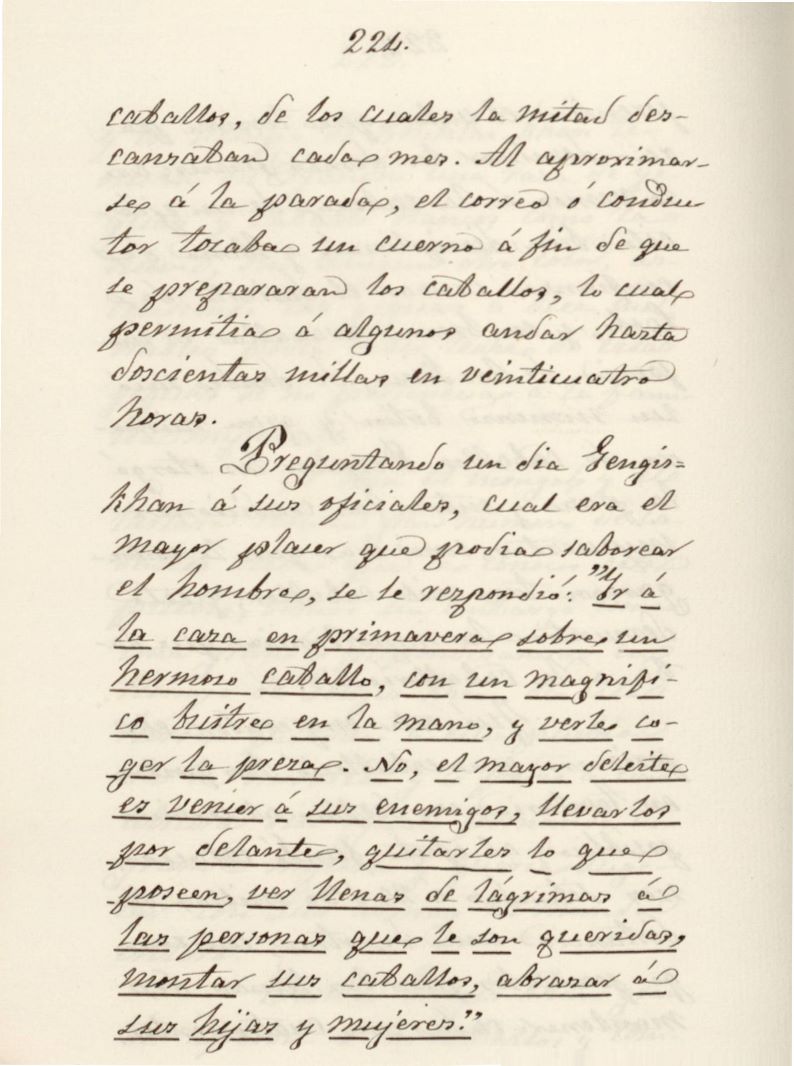 224.
caballos, de los cuales la mitad des-
cansaban cada mes. Al aproximar-
se á la parada, el correo ó conduc-
tor tocaba un cuerno á fin de que
se prepararan los caballos, lo cual
permitia á algunos andar hasta
doscientas millas en veinticuatro
horas.
Preguntando un dia Gengis=
khan á sus oficiales, cual era el
mayor placer que podia saborear
el hombre, se le respondió: "Ir á
la caza en primavera sobre un
hermoso caballo, con un magnifi-
co buitre en la mano, y verle co-
ger la presa. No, el mayor deleite
es vencer á sus enemigos, llevarlos
por delante, quitarles lo que
poseen, ver llenas de lágrimas á
las personas que le son queridas,
montar sus caballos, abrasar á
sus hijas y mujeres."